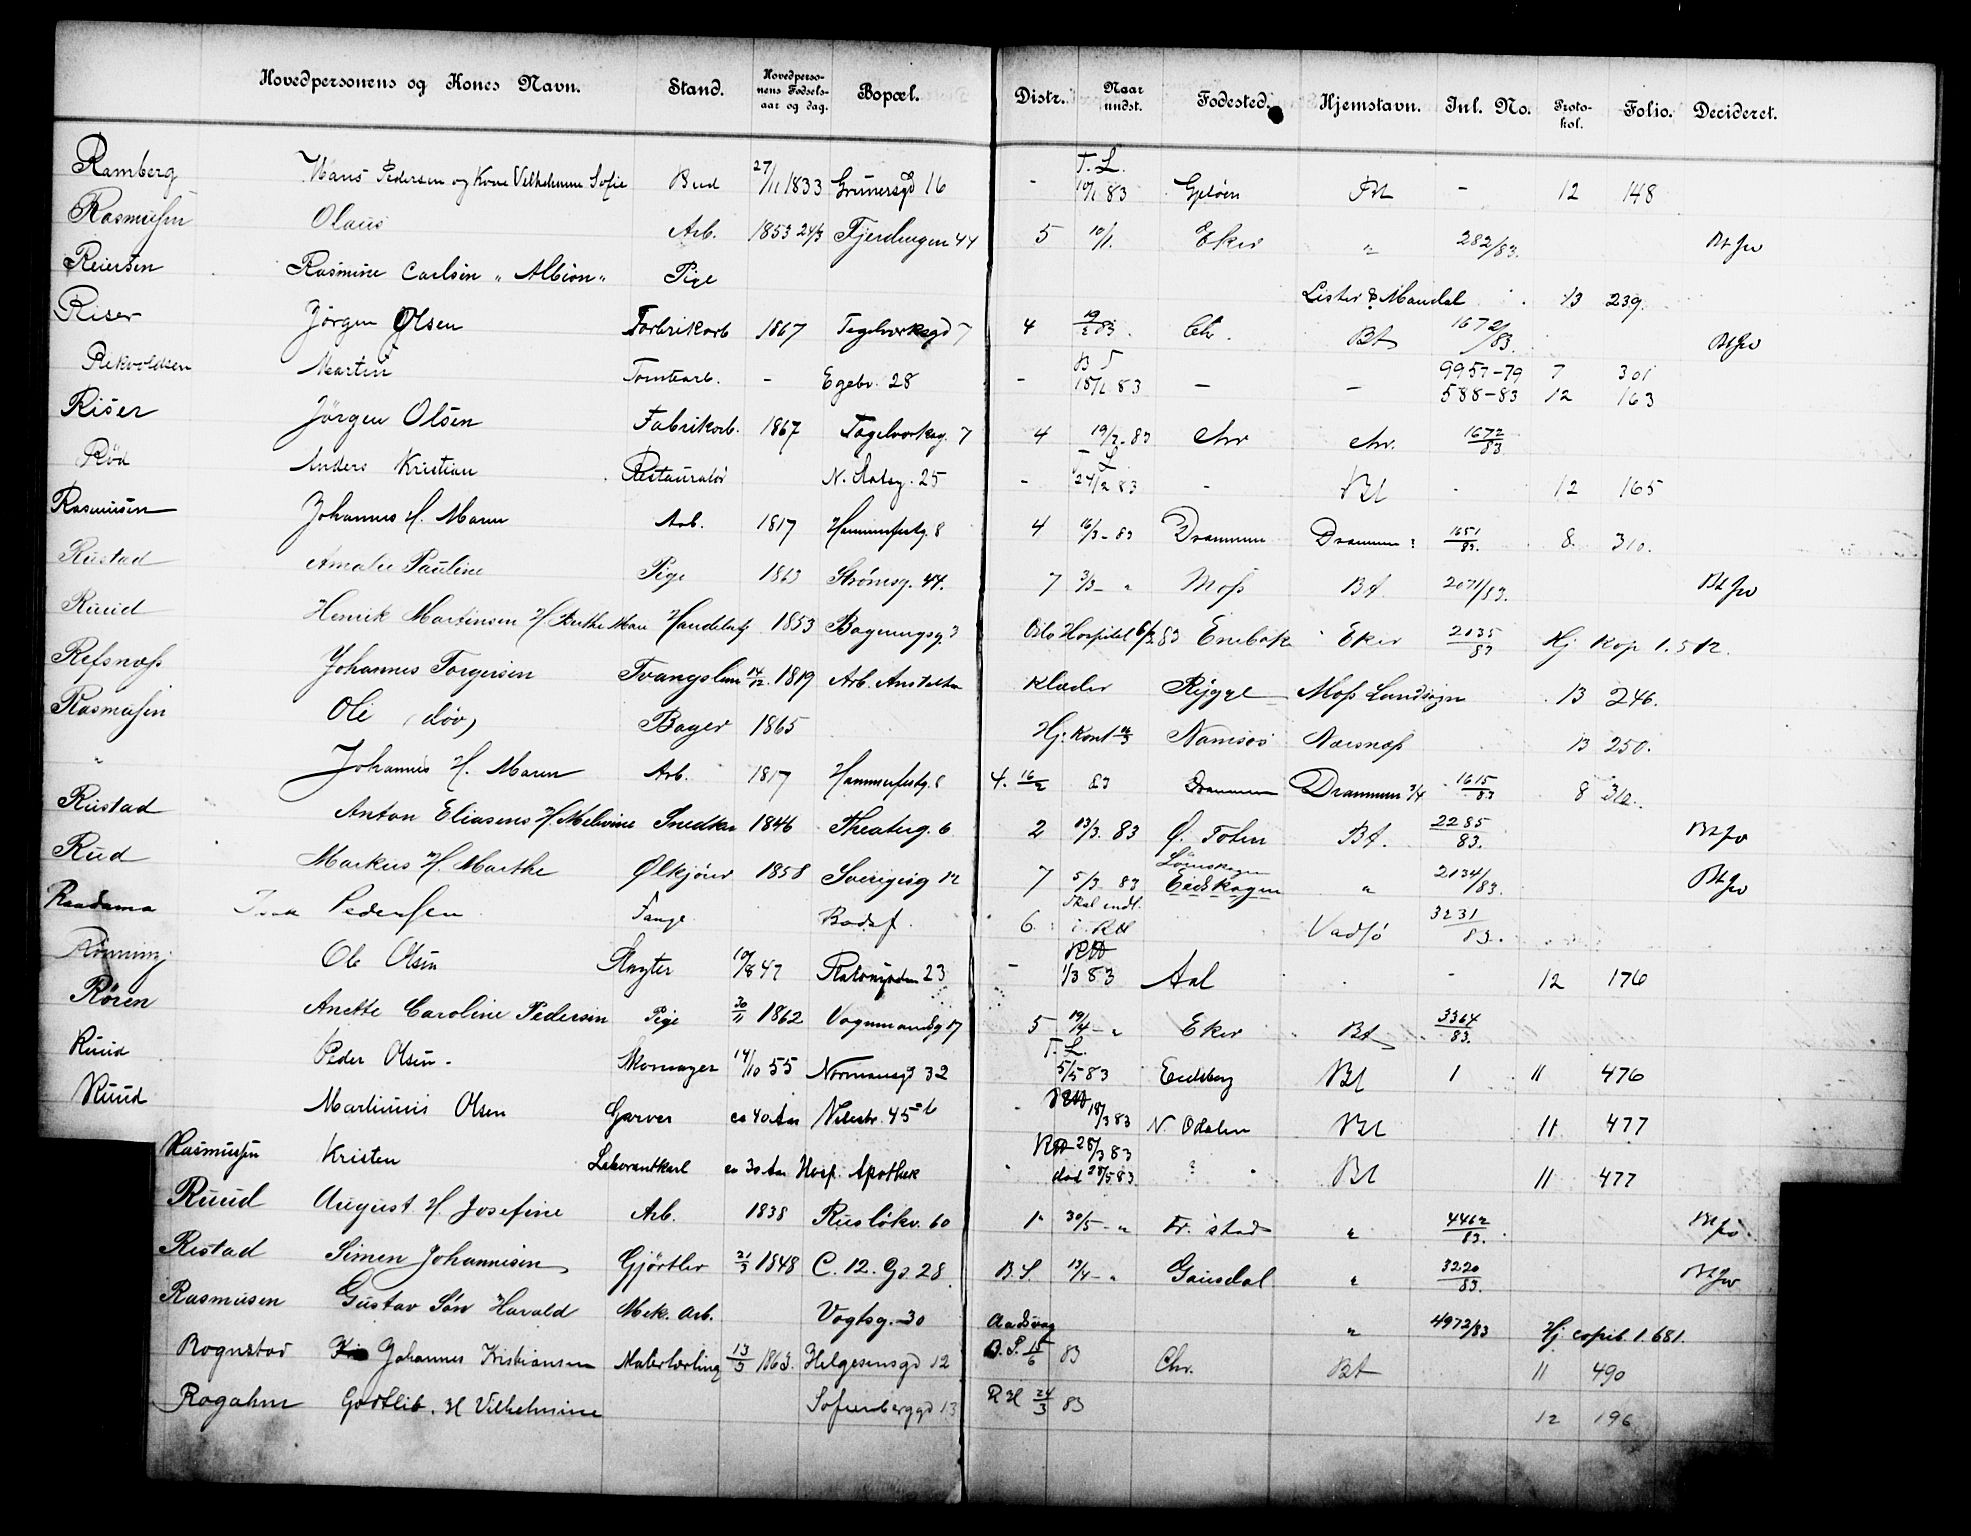 Hovedpersonens og Kones Navn. Stand. Hovedperso-nens Fødsels-aar og dag. Bopæl. Distr. Naar undst. Fødested. Hjemstavn. Inl. No. Proto-kol. Folio. Decideret.
Ramberg Hans Pedersen og Kone Vilhelmine Sofie Bud 27/11 1833 Grünersgd 16 - T. L. 10/1 83 Gjeløen Bt - 12 148
Rasmussen Olaus Arb. 1853 24/3 Fjerdingen 44 5 10/1. Eker " 282/83. Bt
Reiersen Rasmine Carlsen " Albion " Pige Lister & Mandal 13 239.
Riser Jörgen Olsen Fabrikarb 1867 Tegelverksgd 7 4 19/2 83. Chr. Bt 1672/83. Bt
Rekvoldsen Martin Tomtearb. - Egebr. 28 - 15/1 83 - - 9957-79 7 301
588-83 12 163
Riser Jörgen Olsen Fabrikarb. 1867 Tegelverksg. 7 4 19/2-83 Chr Chr. 1672/83
Röd Anders Kristian Restauratör N. Slotsg. 25 - 24/2 83 - Bt - 12 165
Rasmussen Johannes H. Maren Arb. 1817 Hammerfestg. 8 4 16/3-83 Drammen Drammen 1651/83. 8. 310.
Rustad Amalie Pauline Pige 1863 Strömsg. 44. 7 3/3- " Moss Bt 2071/83. Bt
Ruud Henrik Martinsen H. Anthe Mari Handelsb 1853 Bogerudsg. 3 Oslo Hospital 6/3 83 Enebak Eker 2135/83 Hj. Kop 1.512.
Refsnæss Johannes Torgersen Tvangslem 14/12. 1819 Arb. Anstalten Klæder Rygge Moss Landsogn 13 246.
Rasmussen Ole (döv) Bager 1865 Hj. Kont Namsos Nærsnæss 13 250.
" Johannes H. Maren Arb. 1817 Hammerfestg. 8 4. 16/2 83 Drammen Drammen 3/4 1615/83 8 312.
Rustad Anton Eliasens H. Melvine Snedker 1846 Theaterg. 6 2 13/3. 83 Ø. Toten Bt. 2285/83. Bt
Rud Markus H. Marthe Ølkjörer 1858 Sverigesg 12 7 5/3 83 Eidskogen " 2134/83. Bt
Raadama Isak Pedersen Fange Bodsf. 6. Skal indl. i RH Vadsö 3231/83.
Rönning Ole Olsen Slagter 10/8 47 23 - RH 1/3 83 Aal . - 12 176
Rören Anette Caroline Pedersen Pige 30/11 1862 Vognmandsg 17 5 19/4- " Eker Bt 3364/83.
Ruud Peder Olsen. Skomager 14/10 55 Normansgd 32 T. L. 5/5 83 Eidsberg Bt 1 11 476
Ruud Martinius Olsen Garver ca 40 Aar 45 b RH 18/3 83 N. Odalen Bt 11 477
Rasmussen Kristen Laborantkarl ca 30 Aar Hosp. Apothek RH 28/3 83 död 28/5 83. ? Bt 11 477
Ruud August H. Josefine Arb. 1838 Ruslökv. 60 1. 30/5- " Fr. stad " 4462/83. Bt
Restad Simen Johannesen Gjörtler 21/3 1848 C. 12. Gd. 28. B. S. 13/4- " Gausdal " 3220/83. Bt
Rasmusen Gustav Sön Harald Mek. Arb. Vogtsg. 30 Aadsvag " 4972/83 Hj. copib. 1.681.
Rognstad Johannes Kristiansen Malerlærling 13/3 1863. Helgesensgd 12 B. S. 15/6 83 Chr. Bt 11 490
Rogahn Gottlib. H Vilhelmine Sofienberggd 13 RH 24/3 83 12 196